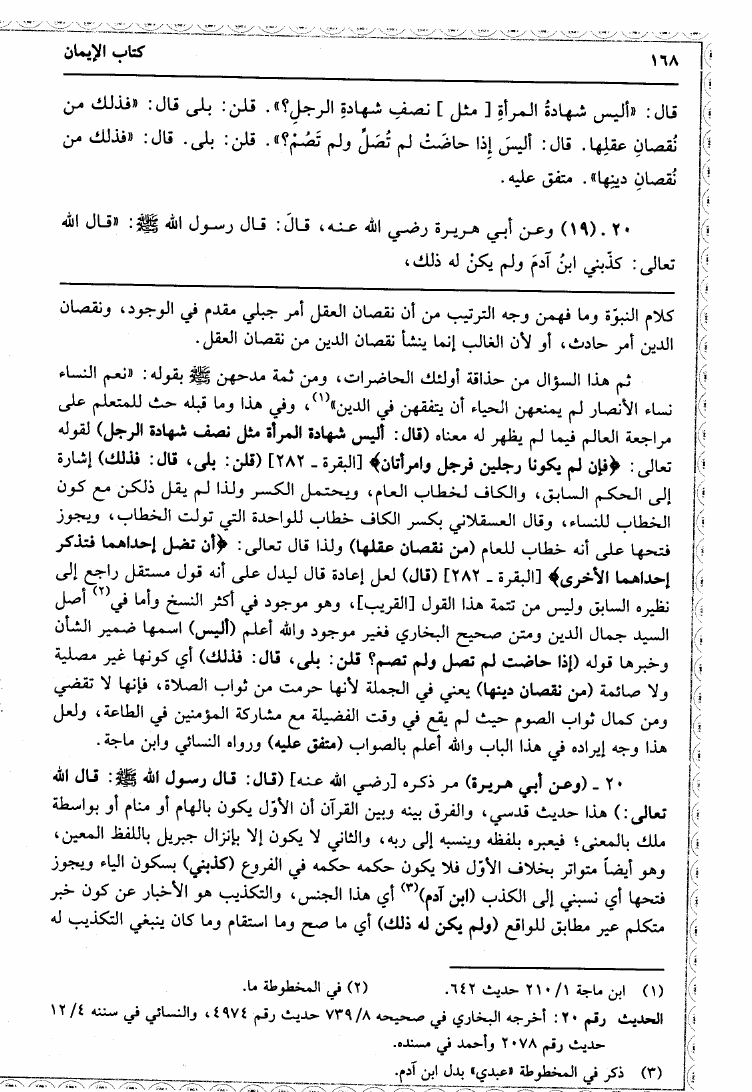 ١٦٨
كتاب الإيمان
قال: «أليس شهادةُ المرأةِ [ مثل ] نصفِ شهادةِ الرجلِ؟». قلن: بلى قال: «فذلك من
نُقصانِ عقلِها. قال: أليسَ إِذا حاضَتْ لم تُصَلِّ ولم تَصُمْ؟». قلن: بلى. قال: «فذلك من
نُقصانِ دينِها». متفق عليه.
٢٠ ـ (١٩) وعـن أبـي هـريـرة رضـي الله عنـه، قـالَ: قـال رسـول الله ﷺ: «قـال الله
تعالى: كذّبني ابنُ آدمَ ولم يكنْ له ذلك،
كلام النبوّة وما فهمن وجه الترتيب من أن نقصان العقل أمر جبلي مقدم في الوجود، ونقصان
الدين أمر حادث، أو لأن الغالب إنما ينشأ نقصان الدين من نقصان العقل.
ثم هذا السؤال من حذاقة أولئك الحاضرات، ومن ثمة مدحهن ﷺ بقوله: «نعم النساء
نساء الأنصار لم يمنعهن الحياء أن يتفقهن في الدين»(١)، وفي هذا وما قبله حث للمتعلم على
مراجعة العالم فيما لم يظهر له معناه (قال: أليس شهادة المرأة مثل نصف شهادة الرجل) لقوله
تعالى: ﴿فإن لم يكونا رجلين فرجل وامرأتان﴾ [البقرة ـ ٢٨٢] (قلن: بلى، قال: فذلك) إشارة
إلى الحكم السابق، والكاف لخطاب العام، ويحتمل الكسر ولذا لم يقل ذلكن مع كون
الخطاب للنساء، وقال العسقلاني بكسر الكاف خطاب للواحدة التي تولت الخطاب، ويجوز
فتحها على أنه خطاب للعام (من نقصان عقلها) ولذا قال تعالى: ﴿أن تضل إحداهما فتذكر
إحداهما الأخرى﴾ [البقرة ـ ٢٨٢] (قال) لعل إعادة قال ليدل على أنه قول مستقل راجع إلى
نظيره السابق وليس من تتمة هذا القول [القريب]، وهو موجود في أكثر النسخ وأما في(٢) أصل
السيد جمال الدين ومتن صحيح البخاري فغير موجود والله أعلم (أليس) اسمها ضمير الشأن
وخبرها قوله (إذا حاضت لم تصل ولم تصم؟ قلن: بلى، قال: فذلك) أي كونها غير مصلية
ولا صائمة (من نقصان دينها) يعني في الجملة لأنها حرمت من ثواب الصلاة، فإنها لا تقضي
ومن كمال ثواب الصوم حيث لم يقع في وقت الفضيلة مع مشاركة المؤمنين في الطاعة، ولعل
هذا وجه إيراده في هذا الباب والله أعلم بالصواب (متفق عليه) ورواه النسائي وابن ماجة.
٢٠ ـ (وعن أبي هريرة) مر ذكره [رضي الله عنه] (قال: قال رسول الله ﷺ: قال الله
تعالى:) هذا حديث قدسي، والفرق بينه وبين القرآن أن الأوّل يكون بالهام أو منام أو بواسطة
ملك بالمعنى؛ فيعبره بلفظه وينسبه إلى ربه، والثاني لا يكون إلا بإنزال جبريل باللفظ المعين،
وهو أيضاً متواتر بخلاف الأوّل فلا يكون حكمه حكمه في الفروع (كذبني) بسكون الياء ويجوز
فتحها أي نسبني إلى الكذب (ابن آدم)(٣) أي هذا الجنس، والتكذيب هو الأخبار عن كون خبر
متكلم عير مطابق للواقع (ولم يكن له ذلك) أي ما صح وما استقام وما كان ينبغي التكذيب له
(١) ابن ماجة ٢١٠/١ حديث ٦٤٢. (٢) في المخطوطة ما.
الحديث رقم ٢٠: أخرجه البخاري في صحيحه ٧٣٩/٨ حديث رقم ٤٩٧٤، والنسائي في سننه ١٢/٤
حديث رقم ٢٠٧٨ وأحمد في مسنده.
(٣) ذكر في المخطوطة «عبدي» بدل ابن آدم.